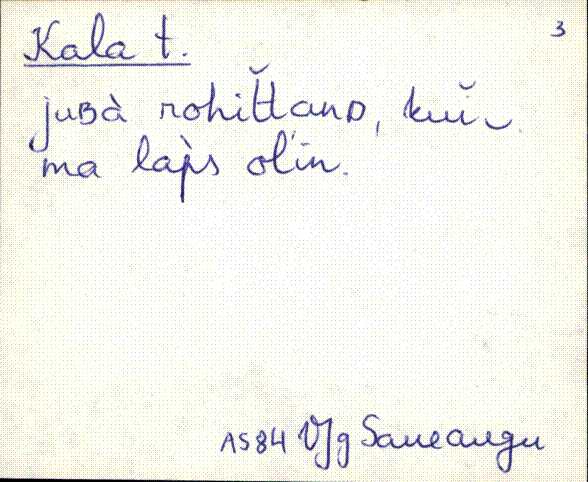 3
Kala t.
juʙà rohit̆t̆anᴅ, kuĭ‿
ma làps ol'in.
AS84 VJg Saueaugu